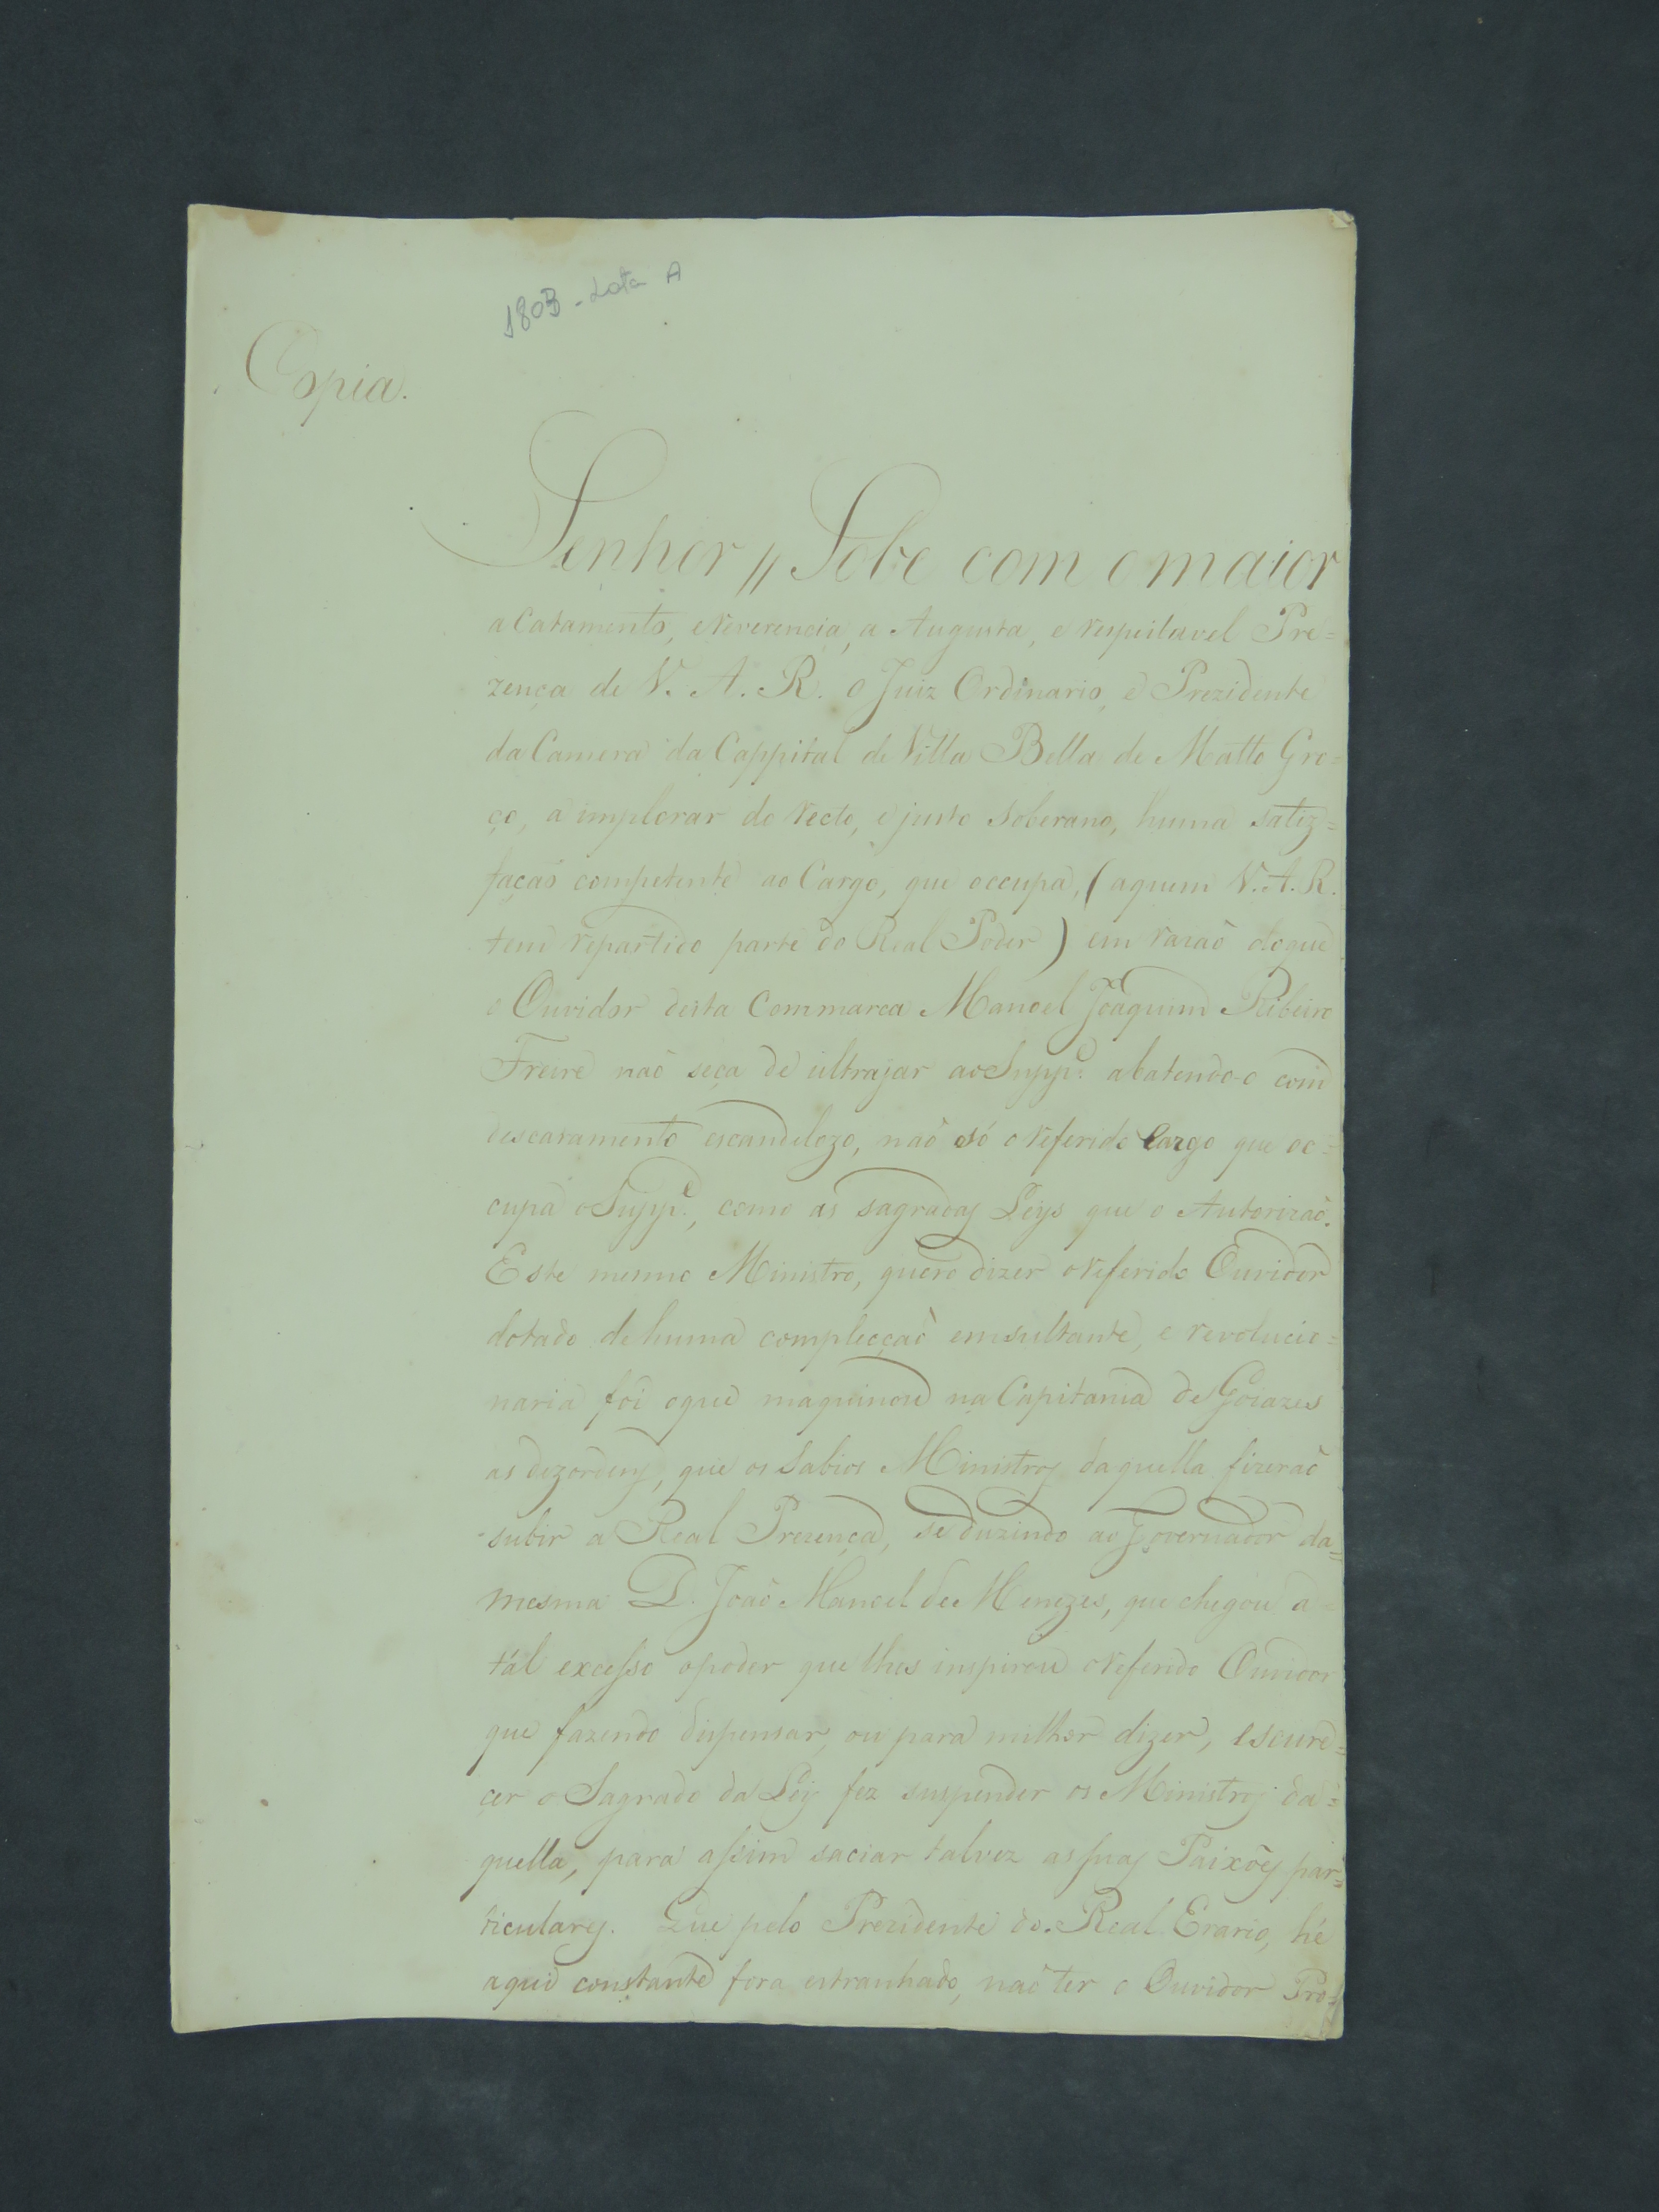 1803 - Lata A
Copia.
Senhor // Sobe com o maior
acatamento, e Rererencia, a Augusta, e respeitavel Pre=
zença de V. A. R. o Juiz Ordinario, e Prezidente
da Camera da Cappital de Villa Bella de Matto Gro=
ço, a implorar do recto, e justo Soberano, huma satiz=
façaõ competente ao Cargo, que occupa, (aquem V. A. R.
tem repartido parte do Real Poder) em razaõ do que
o Ouvidor desta Commarca Manoel Joaquim Ribeiro
Freire naõ seça de ultrajar ao Supp.e abatendo-o com
descaramento escandelozo, naõ só o referido Cargo que oc=
cupa o Supp.e, como as sagradas Leys que o Autorizaõ.
Este mesmo Ministro, quero dizer o referido Ouvidor
dotado de huma complecçaõ emsultante, e revolucio=
naria foi oque maquinou na Capitania de Goiazes
as dezordens, que os Sabios Ministros daquella fizeraõ
subir a Real Prezença, seduzindo ao Governador da=
mesma D. Joaõ Manoel de Menezes, que chegou a=
tál excesso opoder que lhes inspirou o referido Ouvidor
que fazendo dispensar, ou para milhor dizer, escure=
çer o Sagrado da Ley fez suspender os Ministros da=
quella, para assim saciar talvez as suas Paixões par=
ticulares. Que pelo Prezidente do Real Erario, hé
aqui constante fora estranhado, naõ ter o Ouvidor Pro=